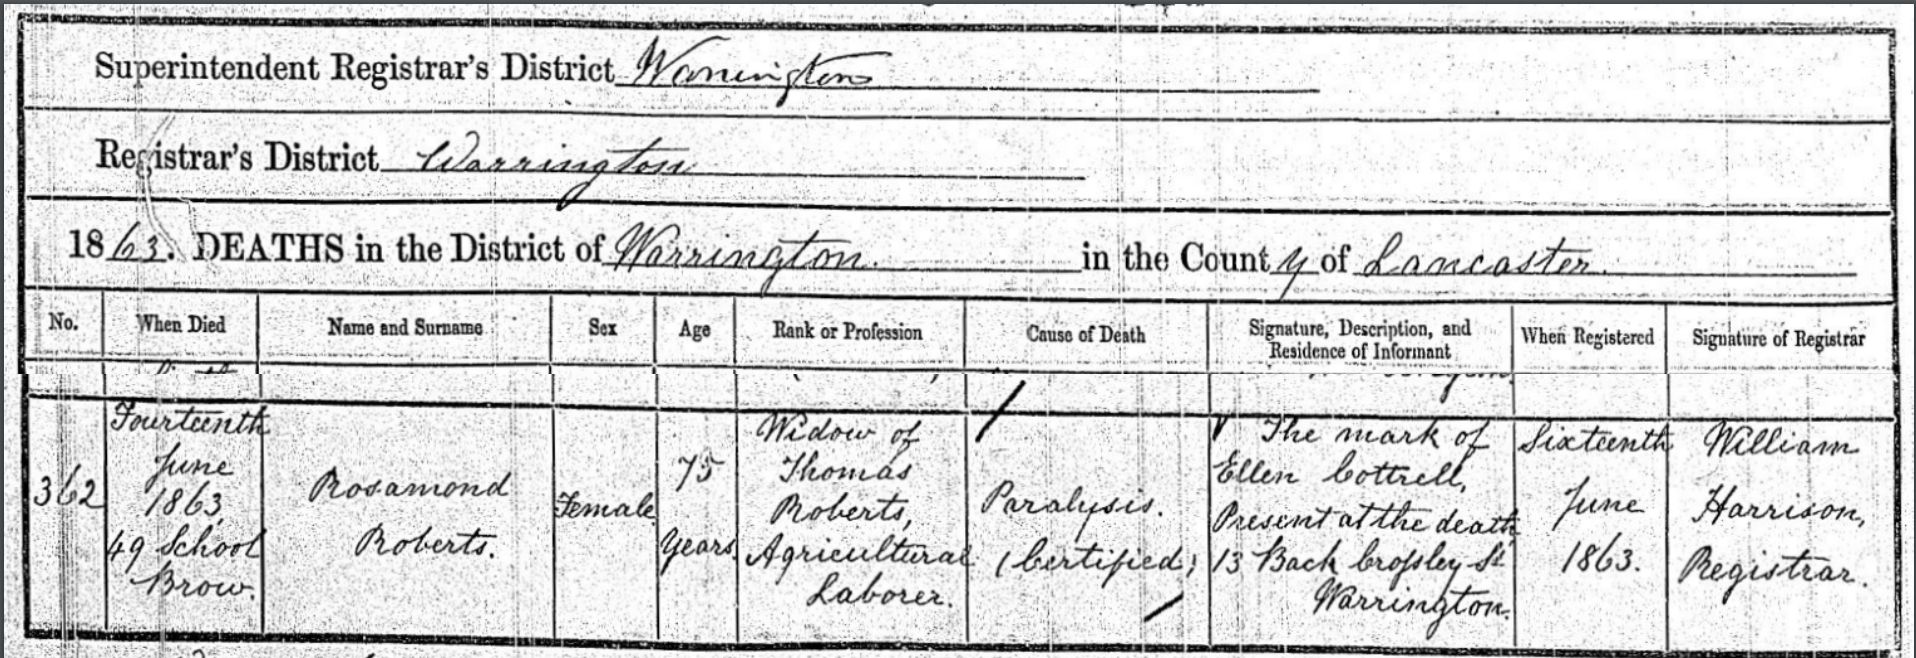 Superintendent Registrar's District Warrington
Registrar's District Warrington
1863. DEATHS in the District of Warrington. in the County of Lancaster.
No.
When Died
Name and Surname
Sex
Age
Rank or Profession
Cause of Death
Signature, Description, and
Residence of Informant
When Registered
Signature of Registrar
362
Fourteenth
June
1863,
49 School
Brow.
Rosamond
Roberts.
Female
75
Years
Widow of
Thomas
Roberts,
Agricultural
Laborer.
Paralysis.
(Certified)
The mark of
Ellen Cottrell,
Present at the death
13 Back Crossley St
Warrington.
Sixteenth
June
1863.
William
Harrison,
Registrar.